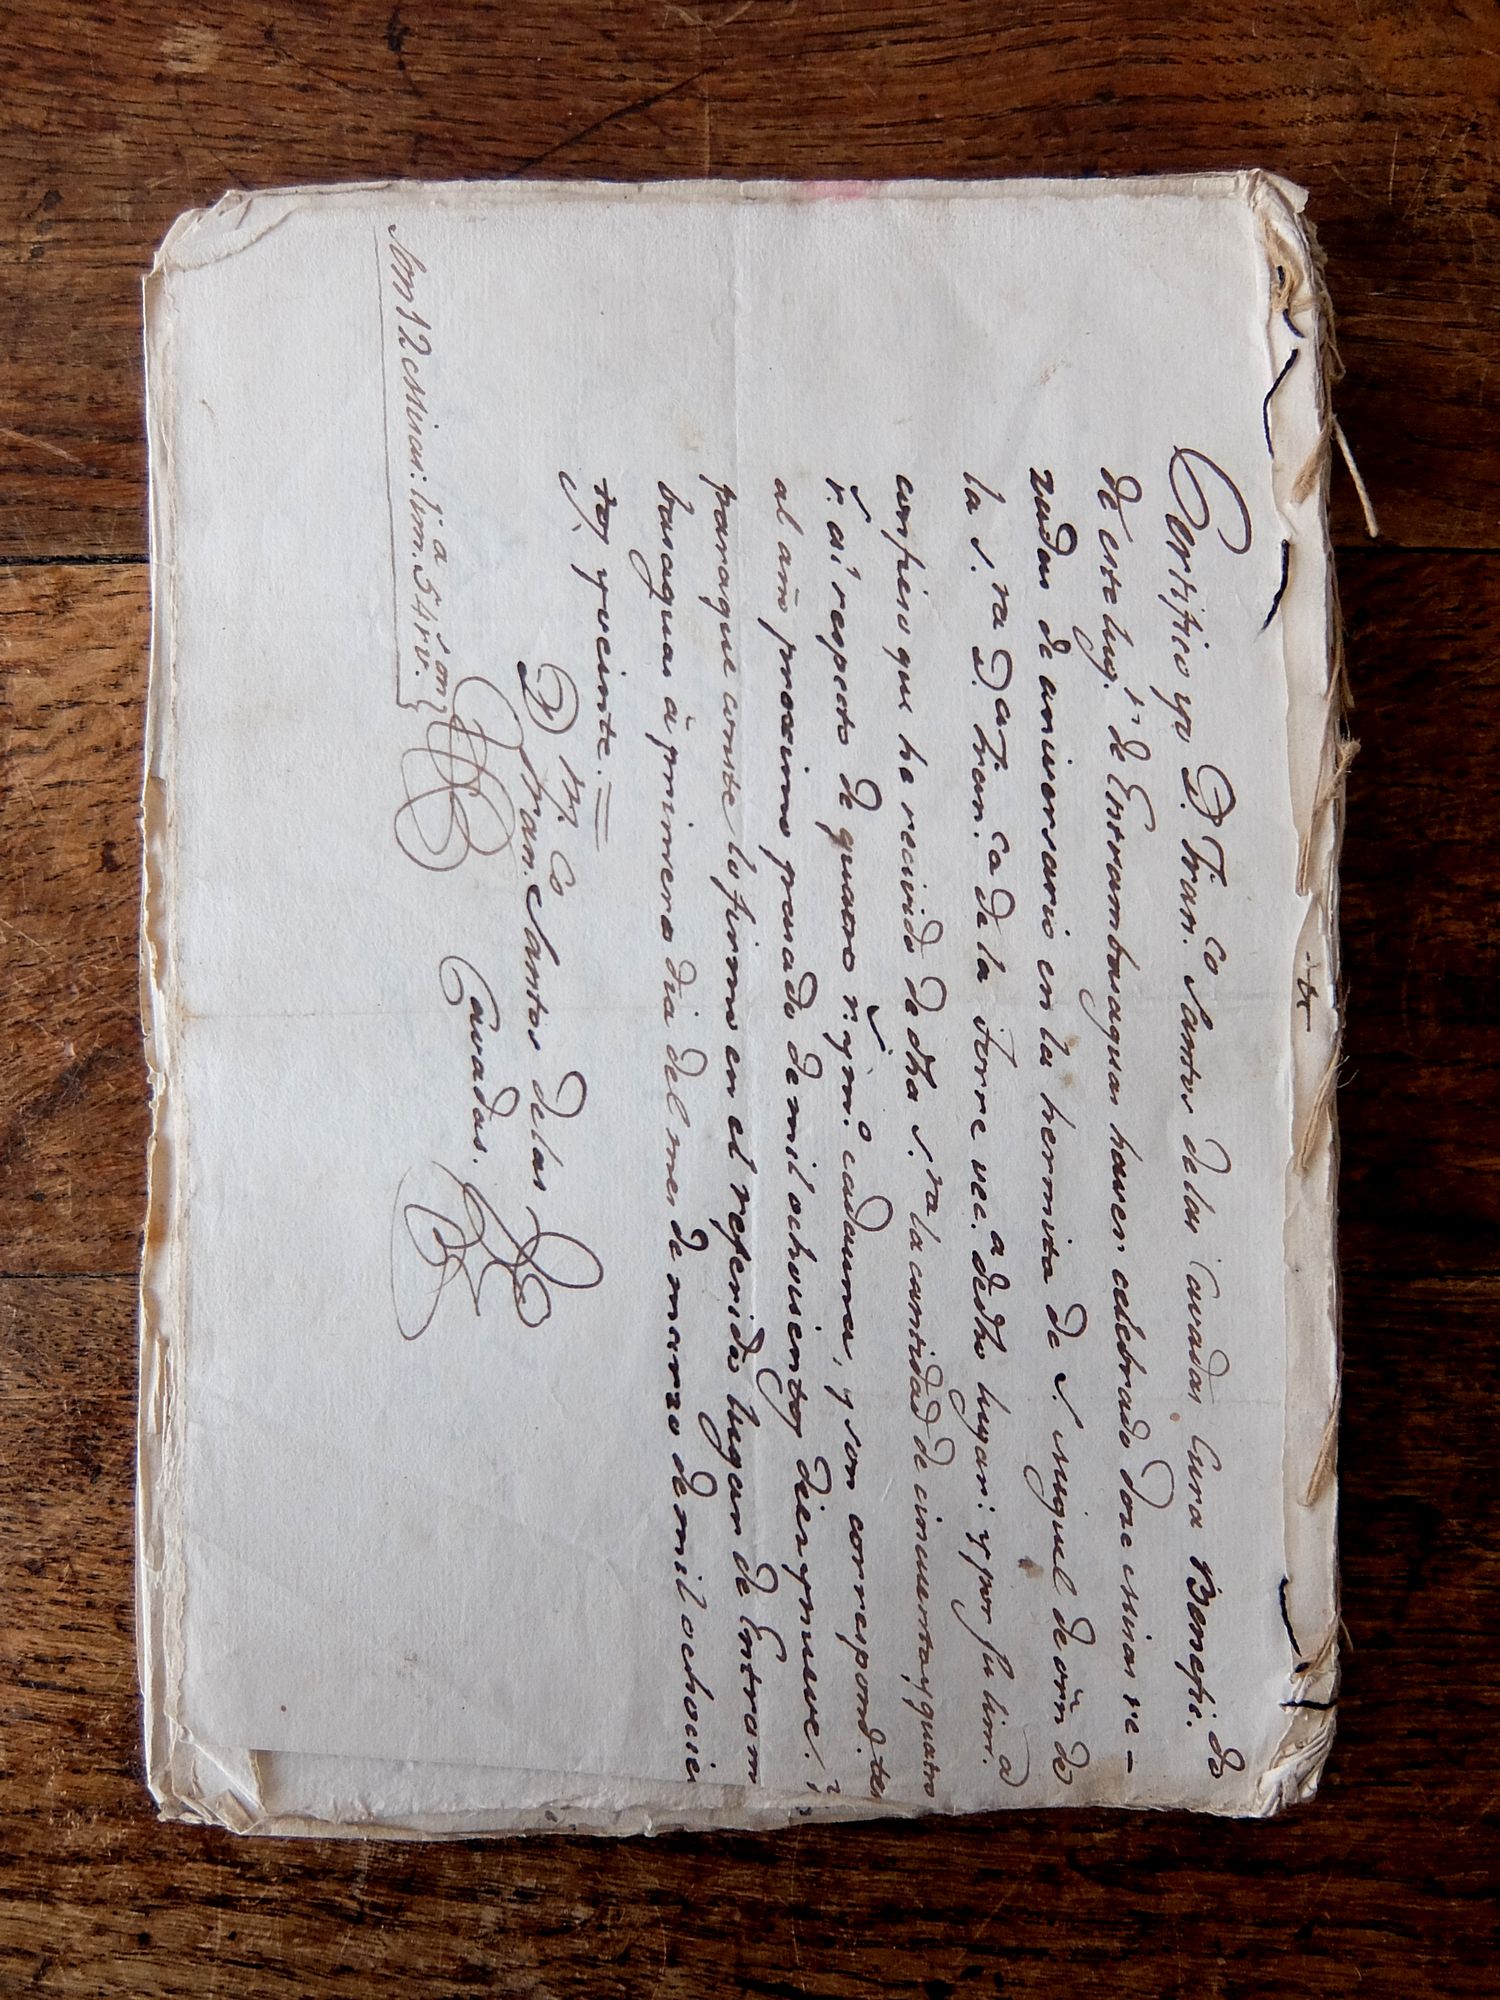 Certifico yo D. Fran.co Santos de las Cavadas Cura Benefic.do
de este lug.r de Entrambasaguas haver celebrado doce misas re-
zadas de aniversario en la hermita de S. Miguel de orn de
la S.ra D.a Fran.ca de la Torre vec.a de dho lugar: y por su lim.a
confieso que he recivido de dha S.ra la cantidad de cinquenta y quatro
r.s al respecto de quatro r.s y m.o cada una, y son correspond.tes
al año proximo pasado de mil ochocientos diez y nueve.
para que conste lo firmo en el referido lugar de Entram
basaguas à primero dia del mes de marzo de mil ochocien
tos y veinte. =
D.n Fran.co Santos de las
Cavadas.
Son 12 misas: lim.a 54 r.s v.on